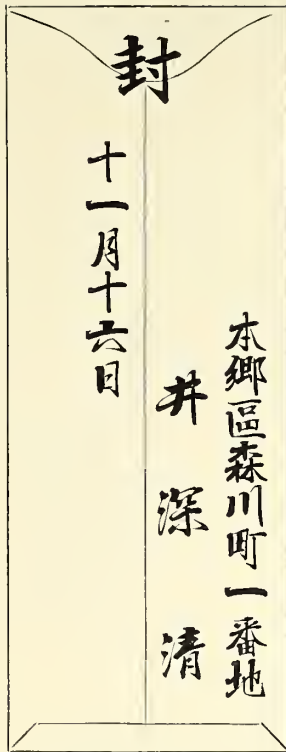 封
本鄉區森川町一番地
井深清
十一月十六日